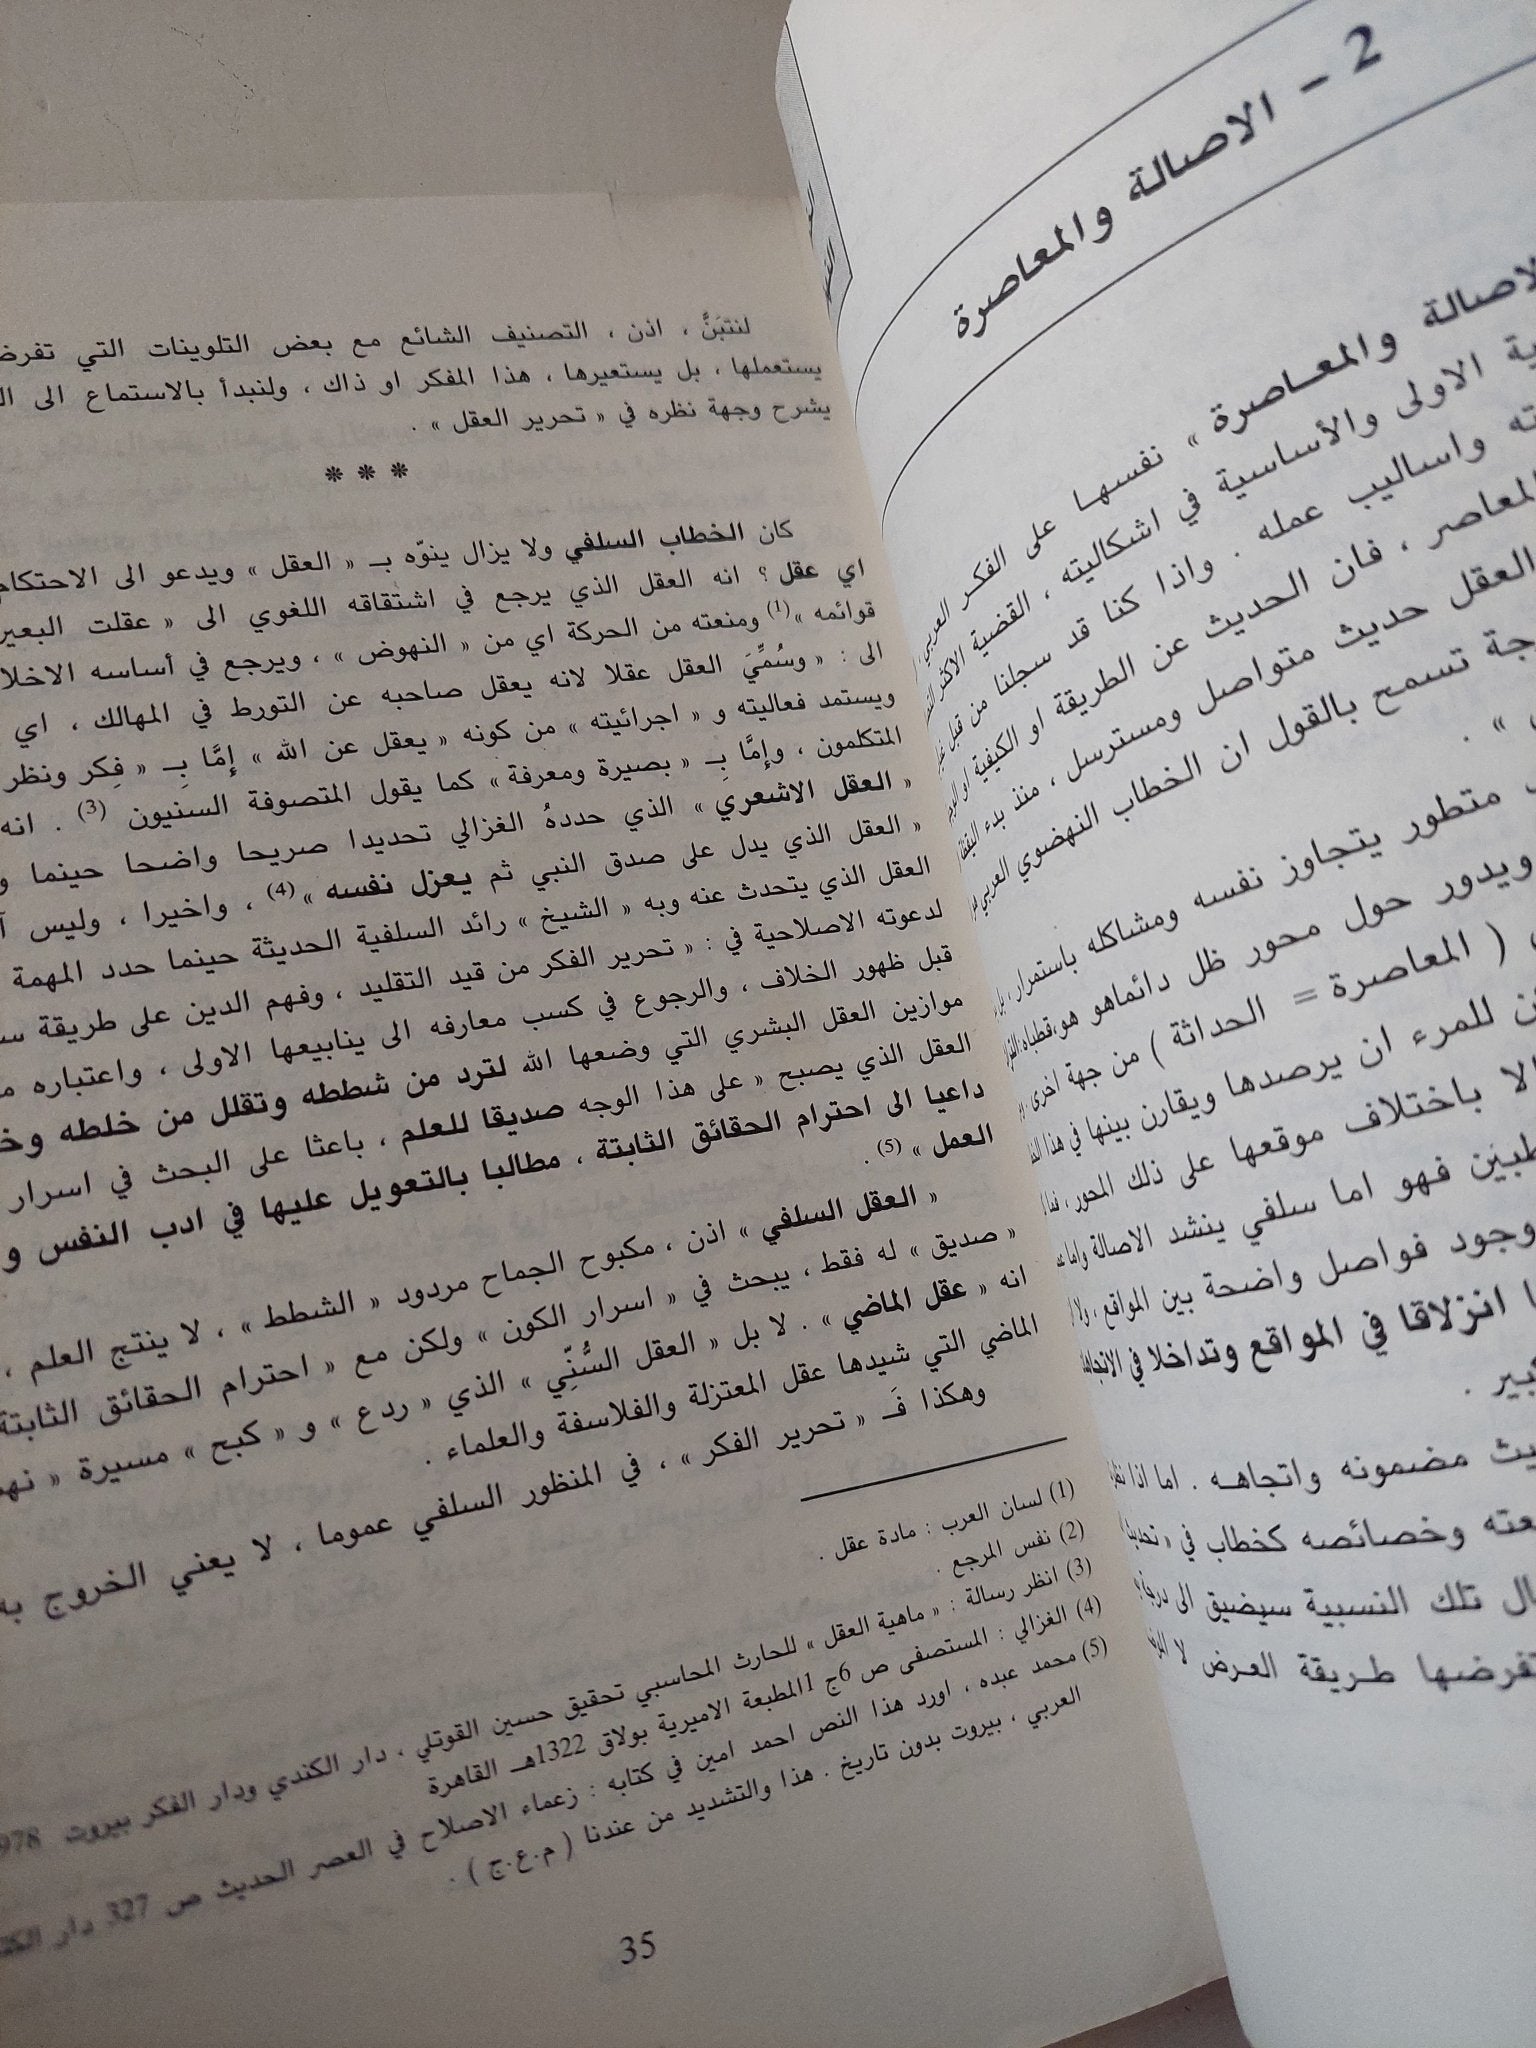 2 - الاصالة والمعاصرة
الاصالة والمعـاصرة » نفسهـا على الفكـر العربي
ية الاولى والأساسية في اشكاليته ، القضية الاكثر
ته واساليب عمله . واذا كنا قد سجلنا من قبل
المعاصر ، فان الحديث عن الطريقة او الكيفية او
العقل حديث متواصل ومسترسل ، منذ بدء اليقظة
جة تسمح بالقول ان الخطاب النهضوي العربي
» .
متطور يتجاوز نفسه ومشاكله باستمرار ،
ويدور حول محور ظل دائماهو هو،قطباه:
( المعاصرة = الحداثة ) من جهة اخرى ،
ن للمرء ان يرصدها ويقارن بينها في هذا
الا باختلاف موقعها على ذلك المحور ،
طبين فهو اما سلفي ينشد الاصالة واما
وجود فواصل واضحة بين المواقع ، ولا
ا انزلاقا في المواقع وتداخلا في الاتجاهات
بير .
يث مضمونه واتجاهـه . اما اذا
عته وخصائصه كخطاب في « تحديث
ال تلك النسبية سيضيق الى درجة
تفرضها طـريقة العـرض لا
لنتبَنَّ ، اذن ، التصنيف الشائع مع بعض التلوينات التي
يستعملها ، بل يستعيرها ، هذا المفكر او ذاك ، ولنبدأ بالاستماع الى
يشرح وجهة نظره في « تحرير العقل » .
* * *
كان الخطاب السلفي ولا يزال ينوّه بـ « العقل » ويدعو الى الاحتكام
اي عقل ؟ انه العقل الذي يرجع في اشتقاقه اللغوي الى « عقلت البعير
قوائمه »(1) ومنعته من الحركة اي من « النهوض » ، ويرجع في أساسه
الى : « وسُمِّيَ العقل عقلا لانه يعقل صاحبه عن التورط في المهالك ، اي
ويستمد فعاليته و « اجرائيته » من كونه « يعقل عن الله » إمَّا بِـ « فِكر ونظر
المتكلمون ، وإمَّا بِـ « بصيرة ومعرفة » كما يقول المتصوفة السنيون (3) . انه
« العقل الاشعري » الذي حددهُ الغزالي تحديدا صريحا واضحا حينما
« العقل الذي يدل على صدق النبي ثم يعزل نفسه »(4) ، واخيرا ، وليس
العقل الذي يتحدث عنه وبه « الشيخ » رائد السلفية الحديثة حينما حدد المهمة
لدعوته الاصلاحية في : « تحرير الفكر من قيد التقليد ، وفهم الدين على طريقة
قبل ظهور الخلاف ، والرجوع في كسب معارفه الى ينابيعها الاولى ، واعتباره
موازين العقل البشري التي وضعها الله لترد من شططه وتقلل من خلطه
العقل الذي يصبح « على هذا الوجه صديقا للعلم ، باعثا على البحث في اسرار
داعيا الى احترام الحقائق الثابتة ، مطالبا بالتعويل عليها في ادب النفس و
العمل » (5) .
« العقل السلفي » اذن ، مكبوح الجماح مردود « الشطط » ، لا ينتج العلم ،
« صديق » له فقط ، يبحث في « اسرار الكون » ولكن مع « احترام الحقائق الثابتة
انه « عقل الماضي » . لا بل « العقل السُّنِّي » الذي « ردع » و « كبح » مسيرة «
الماضي التي شيدها عقل المعتزلة والفلاسفة والعلماء .
وهكذا فَـ « تحرير الفكر » ، في المنظور السلفي عموما ، لا يعني الخروج
(1) لسان العرب : مادة عقل .
(2) نفس المرجع .
(3) انظر رسالة : « ماهية العقل » للحارث المحاسبي تحقيق حسين القوتلي ، دار الكندي ودار الفكر بيروت 978
(4) الغزالي : المستصفى ص 6ج 1المطبعة الاميرية بولاق 1322هـ القاهرة
(5) محمد عبده ، اورد هذا النص احمد امين في كتابه : زعماء الاصلاح في العصر الحديث ص 327 دار
العربي ، بيروت بدون تاريخ . هذا والتشديد من عندنا ( م.ع.ج ) .
35